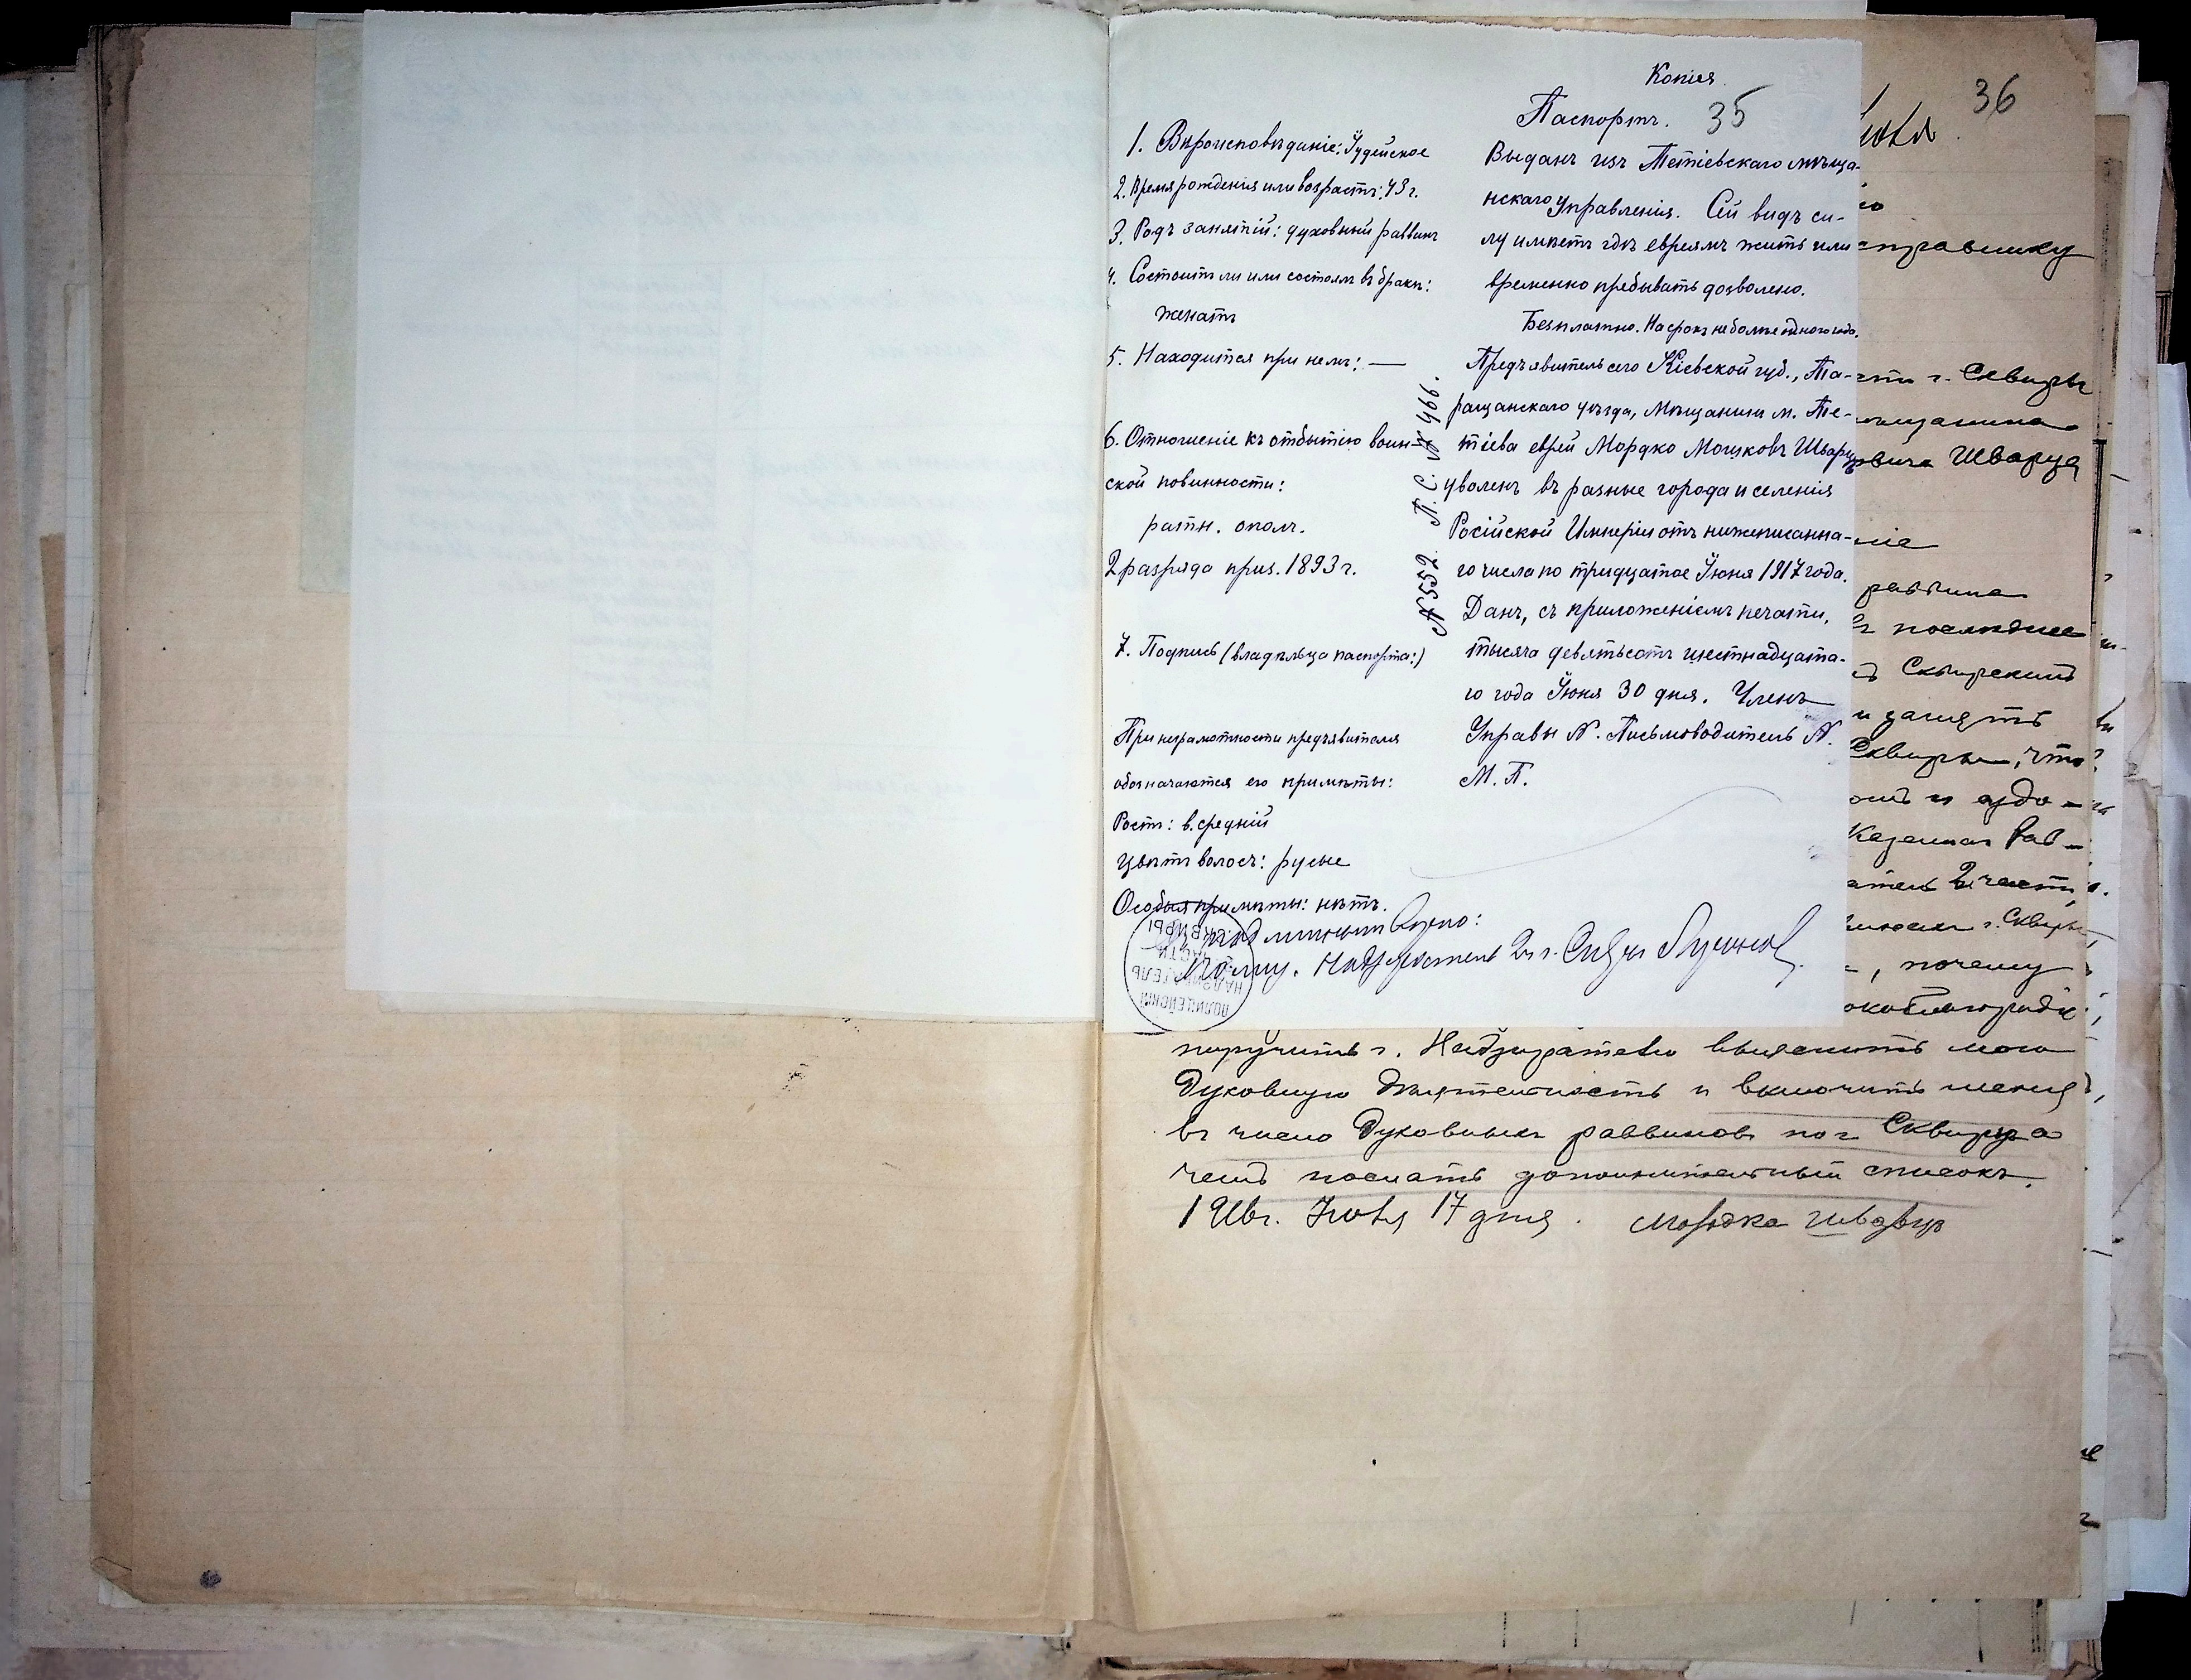 Копія.
Паспортъ. 35
1. Вѣроисповѣданіе: Іудейское
2. Время рожденія или возрастъ: 43 г.
3. Родъ занятій: духовный раввинъ
4. Состоитъ ли или состоялъ въ бракѣ:
женатъ
5. Находится при немъ: —
6. Отношеніе къ отбытію воин-
ской повинности:
ратн. ополч.
2 разряда приз. 1893 г.
7. Подпись (владѣльца паспорта:)
При неграмотности предъявителя
обозначаются его примѣты:
Ростъ: в. средній
Цвѣтъ волосъ: русые
Особыя примѣты: нѣтъ.
№ 5552. П. С. № 466.
Выданъ изъ Тетіевскаго мѣща-
нскаго Управленія. Сей видъ си-
лу имѣетъ гдѣ евреямъ жить или
временно пребывать дозволено.
Безплатно. На срокъ не болѣе одного года.
Предъявитель сего Кіевской губ., Та-
ращанскаго уѣзда, Мѣщанинъ м. Те-
тіева еврей Мордко Мошковъ Шварцъ
уволенъ въ разные города и селенія
Російской Имперіи отъ нижеписанна-
го числа по тридцатое Іюня 1917 года.
Данъ, съ приложеніемъ печати,
тысяча девятьсотъ шестнадцата-
го года Іюня 30 дня. Членъ
Управы N. Письмоводитель N.
М. П.
Съ подлиннымъ вѣрно:
Полиц. Надзиратель 2 ч. г. Сквиры
ПОЛИЦЕЙСКІЙ НАДЗИРАТЕЛЬ ЧАСТИ Г. СКВИРЫ
36
справнику
г. Сквиры
мѣщанина
овича Шварца
ніе
раввина
послѣднее
Сквирскій
и занять
Сквиры, что
Казенная Рав-
2 части
г. Сквиры
, почему
окоблагородіе
поручить г. Надзирателю выяснить мою
Духовную дѣятельность и включить меня
въ число Духовныхъ раввиновъ по г. Сквира
чемъ послать дополнительный списокъ.
191 г. 17 дня. Мордка Шварцъ